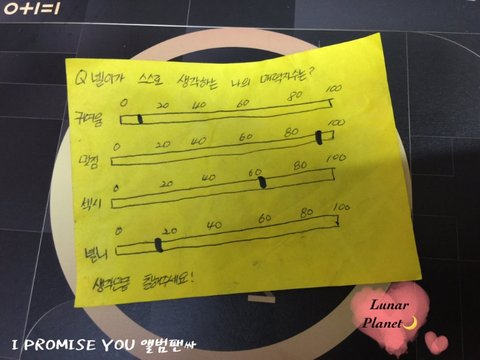 0+1=1
Q 넬이가 스스로 생각하는 나의 매력지수는?
0 20 40 60 80 100
귀여움
0 20 40 60 80 100
멋짐
0 20 40 60 80 100
섹시
0 20 40 60 80 100
생각만큼 칠해주세요!
Lunar
Planet
I PROMISE YOU 앨범팬싸